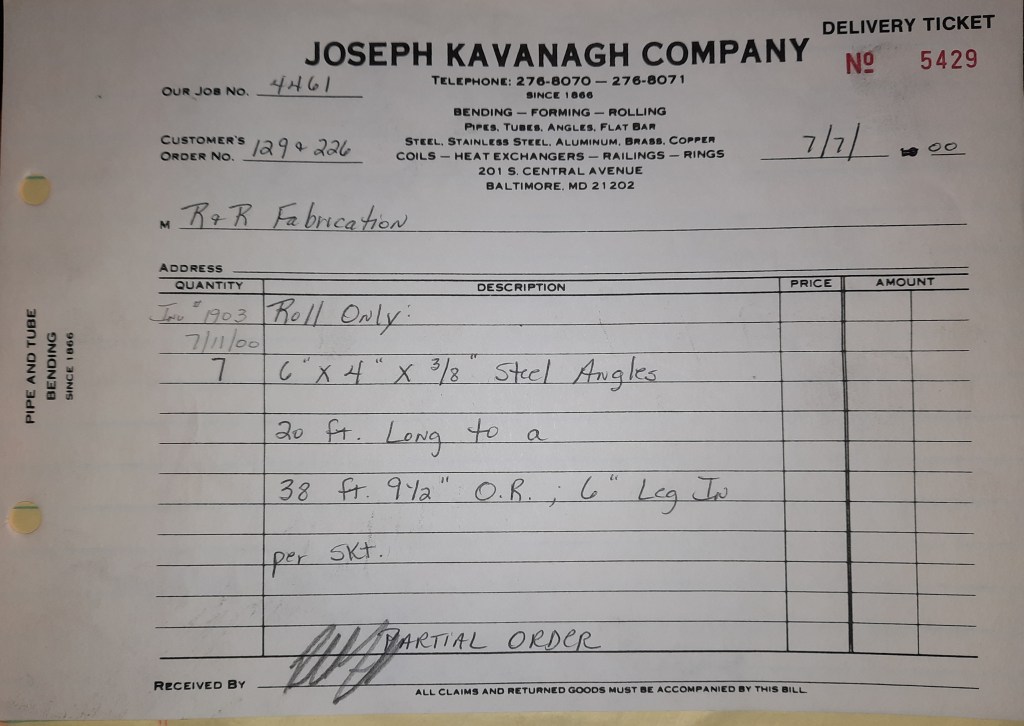 DELIVERY TICKET
JOSEPH KAVANAGH COMPANY
Nº 5429
TELEPHONE: 276-8070 — 276-8071
SINCE 1866
OUR JOB NO. 4461
BENDING — FORMING — ROLLING
PIPES, TUBES, ANGLES, FLAT BAR
STEEL, STAINLESS STEEL, ALUMINUM, BRASS, COPPER
COILS — HEAT EXCHANGERS — RAILINGS — RINGS
201 S. CENTRAL AVENUE
BALTIMORE, MD 21202
CUSTOMER'S
ORDER NO. 129 & 226
7/7/ 00
M R & R Fabrication
ADDRESS
QUANTITY DESCRIPTION PRICE AMOUNT
Inv # 1903 Roll Only:
7/11/00
7 6" X 4" X 3/8" Steel Angles
20 ft. Long to a
38 ft. 9 1/2" O.R. ; 6" Leg In
per SKt.
PARTIAL ORDER
RECEIVED BY
ALL CLAIMS AND RETURNED GOODS MUST BE ACCOMPANIED BY THIS BILL.
PIPE AND TUBE
BENDING
SINCE 1866